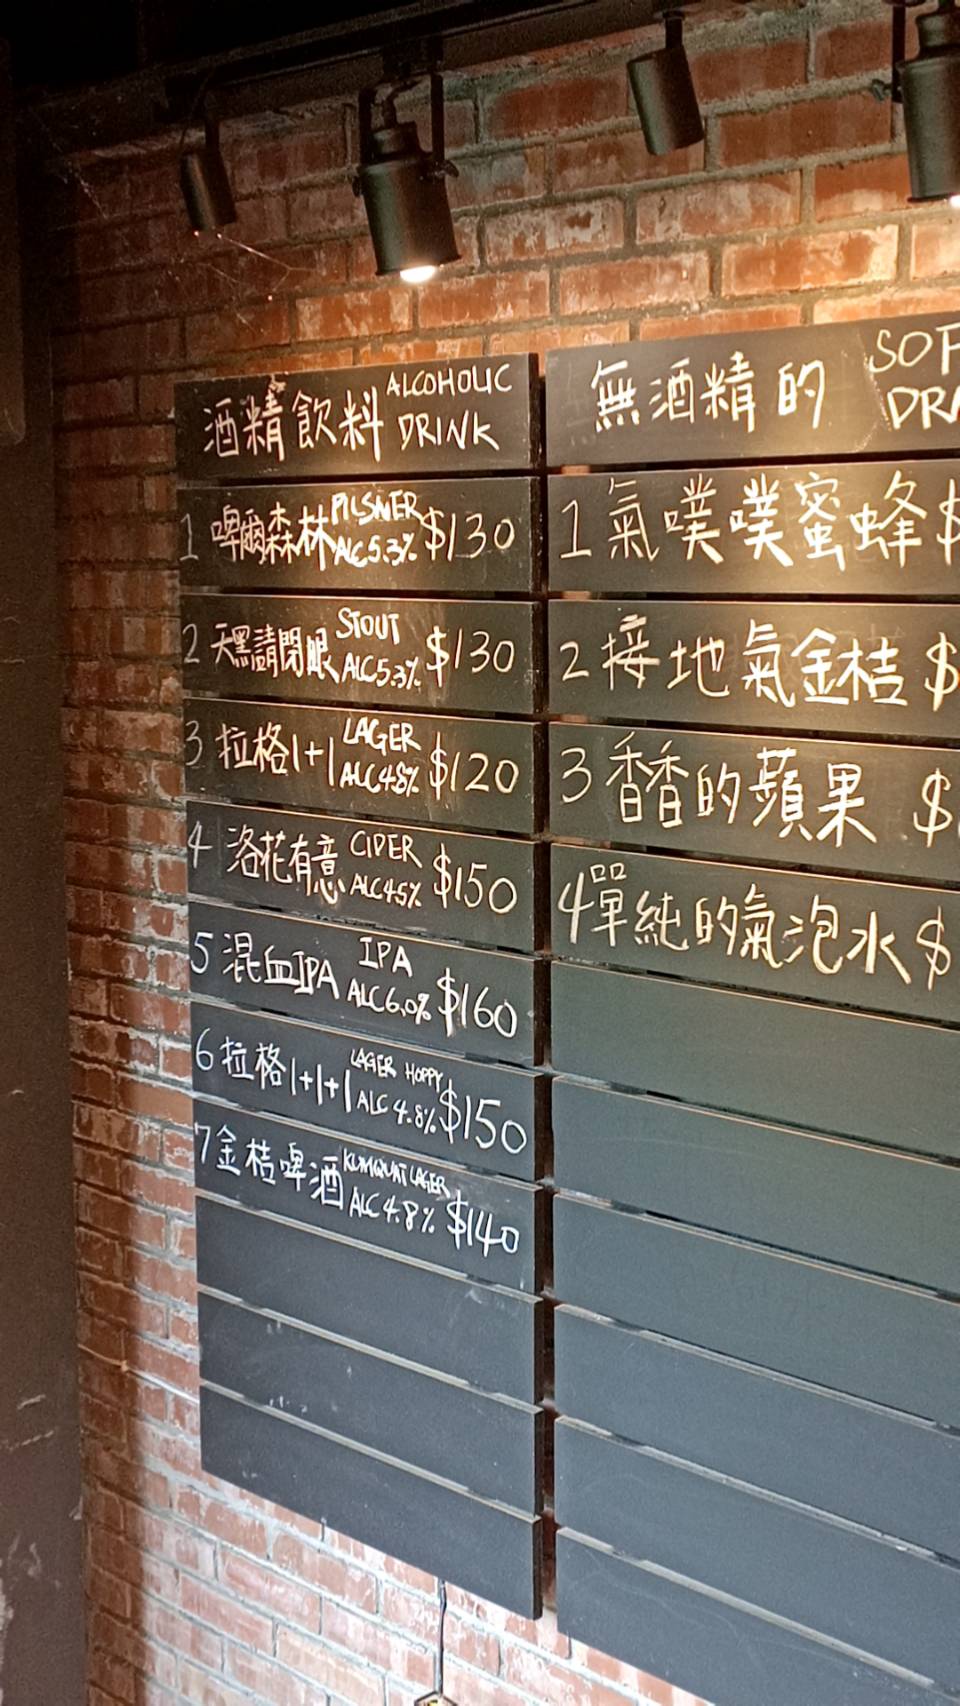 酒精飲料 ALCOHOLIC DRINK
1 啤爾森林 PILSNER ALC5.3% $130
2 天黑請閉眼 STOUT ALC5.3% $130
3 拉格1+1 LAGER ALC4.8% $120
4 洛花有意 CIDER ALC4.5% $150
5 混血IPA IPA ALC6.0% $160
6 拉格1+1+1 LAGER HOPPY ALC 4.8% $150
7 金桔啤酒 KUMQUAT LAGER ALC 4.8% $140
無酒精的 SOF DRA
1 氣噗噗蜜蜂 $
2 接地氣金桔 $
3 香香的蘋果 $
4 單純的氣泡水 $